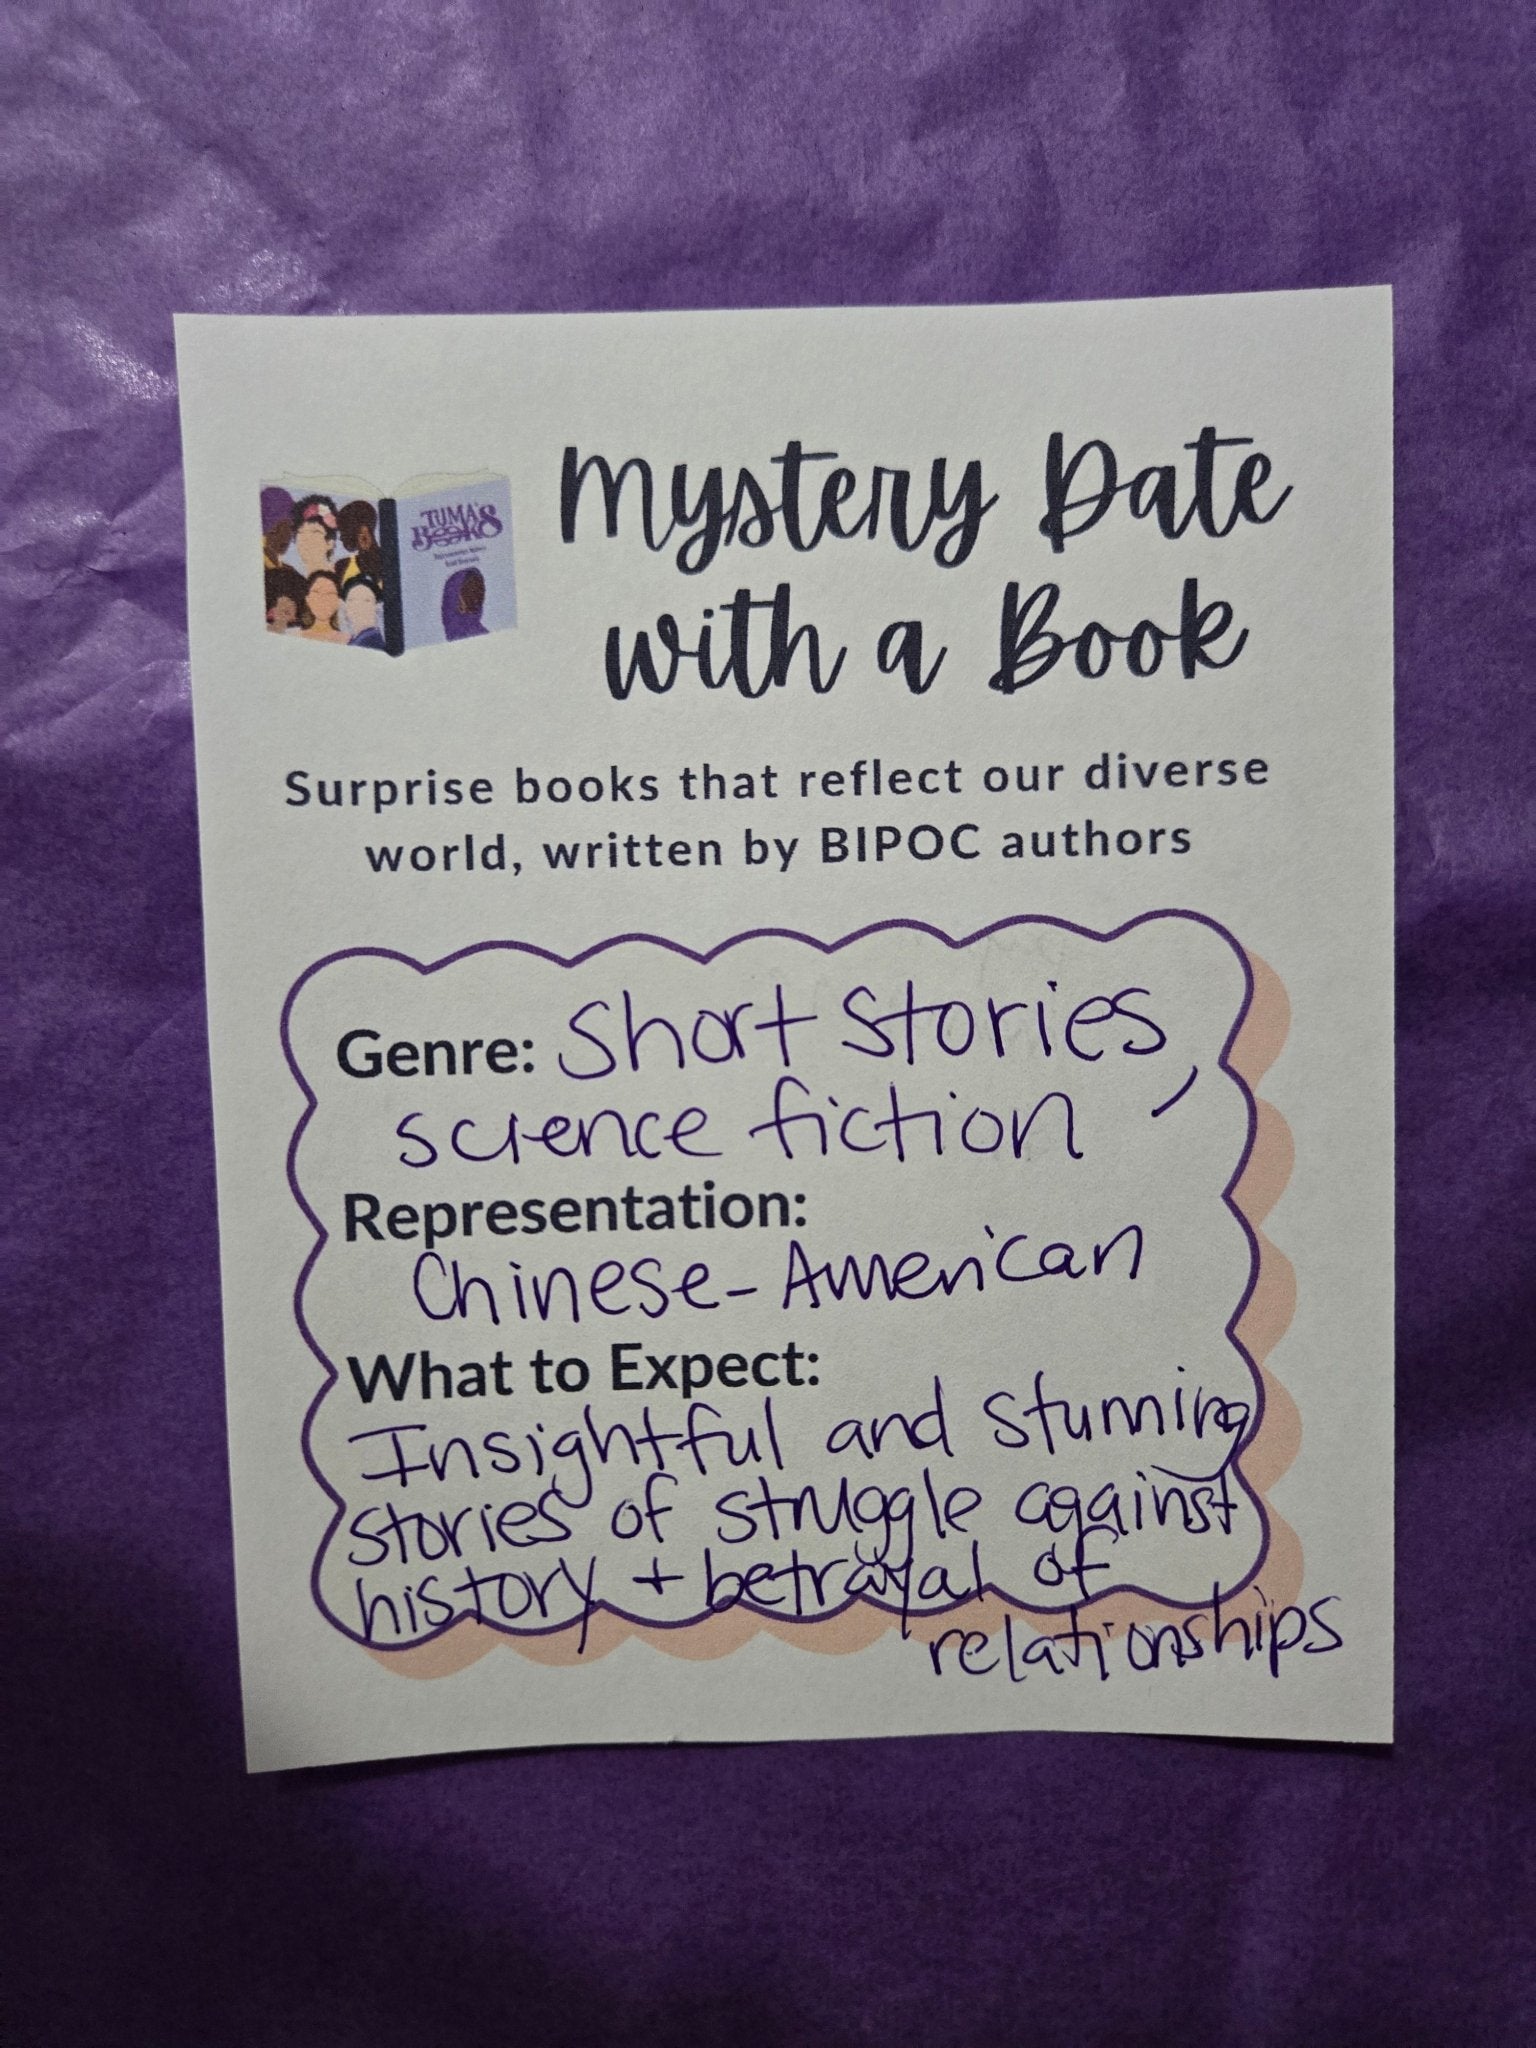 TUMA'S
BOOKS
Mystery Date
with a Book
Surprise books that reflect our diverse
world, written by BIPOC authors
Genre: Short Stories,
science fiction
Representation:
Chinese-American
What to Expect:
Insightful and stunning
stories of struggle against
history + betrayal of
relationships